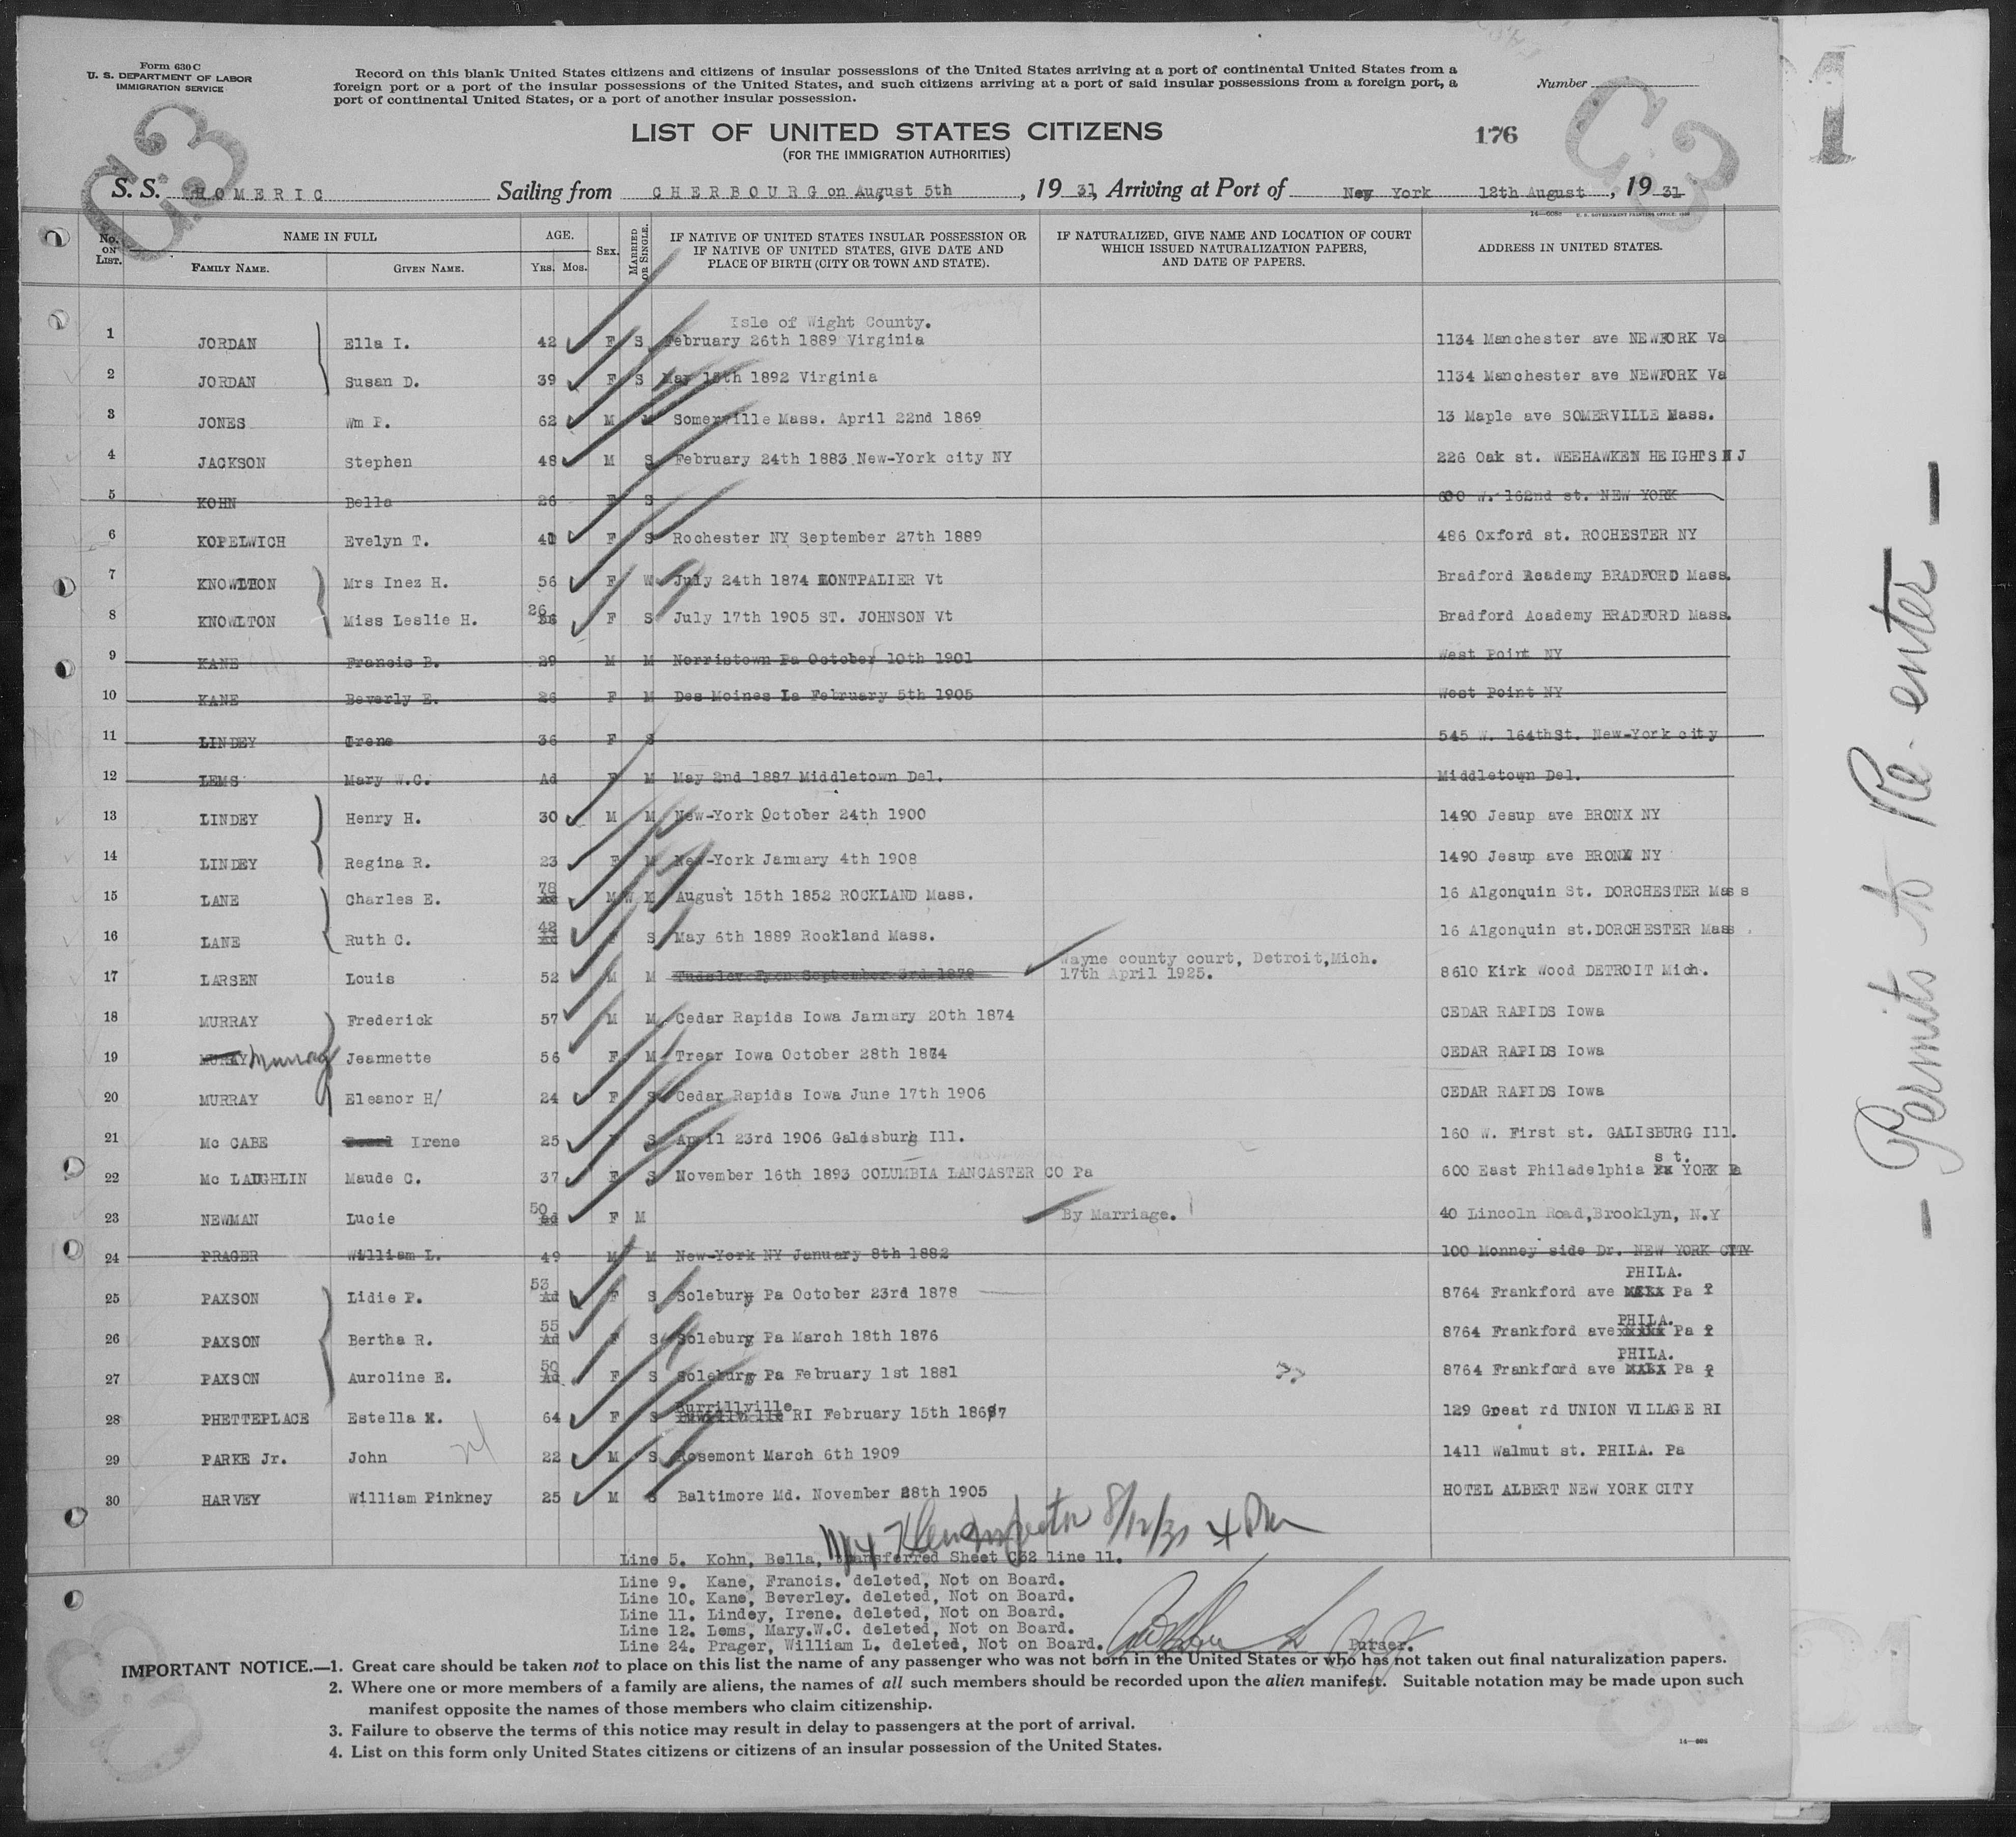 Form 630 C
U. S. DEPARTMENT OF LABOR
IMMIGRATION SERVICE
Record on this blank United States citizens and citizens of insular possessions of the United States arriving at a port of continental United States from a
foreign port or a port of the insular possessions of the United States, and such citizens arriving at a port of said insular possessions from a foreign port, a
port of continental United States, or a port of another insular possession.
Number
C3
C3
LIST OF UNITED STATES CITIZENS
(FOR THE IMMIGRATION AUTHORITIES)
176
S. S. HOMERIC Sailing from CHERBOURG on August 5th, 19 31, Arriving at Port of New York 12th August, 19 31
No. ON LIST. NAME IN FULL FAMILY NAME. GIVEN NAME. AGE. YRS. MOS. SEX. MARRIED OR SINGLE. IF NATIVE OF UNITED STATES INSULAR POSSESSION OR IF NATIVE OF UNITED STATES, GIVE DATE AND PLACE OF BIRTH (CITY OR TOWN AND STATE). IF NATURALIZED, GIVE NAME AND LOCATION OF COURT WHICH ISSUED NATURALIZATION PAPERS, AND DATE OF PAPERS. ADDRESS IN UNITED STATES.
Isle of Wight County.
1 JORDAN Ella I. 42 F S February 26th 1889 Virginia 1134 Manchester ave NEWFORK Va
2 JORDAN Susan D. 39 F S May 13th 1892 Virginia 1134 Manchester ave NEWFORK Va
3 JONES Wm P. 62 M M Somerville Mass. April 22nd 1869 13 Maple ave SOMERVILLE Mass.
4 JACKSON Stephen 48 M S February 24th 1883 New-York city NY 226 Oak st. WEEHAWKEN HEIGHTS N J
5 KOHN Bella 26 F S 600 W. 162nd st. NEW YORK
6 KOPELWICH Evelyn T. 41 F S Rochester NY September 27th 1889 486 Oxford st. ROCHESTER NY
7 KNOWLTON Mrs Inez H. 56 F W July 24th 1874 MONTPALIER Vt Bradford Academy BRADFORD Mass.
8 KNOWLTON Miss Leslie H. 26 F S July 17th 1905 ST. JOHNSON Vt Bradford Academy BRADFORD Mass.
9 KANE Francis B. 29 M M Norristown Pa October 10th 1901 West Point NY
10 KANE Beverly E. 26 F M Des Moines Ia February 5th 1905 West Point NY
11 LINDEY Irene 36 F S 545 W. 164th St. New-York city
12 LEMS Mary W.C. Ad F M May 2nd 1887 Middletown Del. Middletown Del.
13 LINDEY Henry H. 30 M M New-York October 24th 1900 1490 Jesup ave BRONX NY
14 LINDEY Regina R. 23 F M New-York January 4th 1908 1490 Jesup ave BRONX NY
15 LANE Charles E. 78 Ad M W M August 15th 1852 ROCKLAND Mass. 16 Algonquin St. DORCHESTER Mass
16 LANE Ruth C. 42 Ad F S May 6th 1889 Rockland Mass. 16 Algonquin st. DORCHESTER Mass.
17 LARSEN Louis 52 M M September 3rd 1878 Wayne county court, Detroit, Mich. 17th April 1925. 8610 Kirk Wood DETROIT Mich.
18 MURRAY Frederick 57 M M Cedar Rapids Iowa January 20th 1874 CEDAR RAPIDS Iowa
19 Murray Jeannette 56 F M Traer Iowa October 28th 1874 CEDAR RAPIDS Iowa
20 MURRAY Eleanor H/ 24 F S Cedar Rapids Iowa June 17th 1906 CEDAR RAPIDS Iowa
21 Mc CABE Irene 25 F S April 23rd 1906 Galesburg Ill. 160 W. First st. GALISBURG Ill.
22 Mc LAUGHLIN Maude C. 37 F S November 16th 1893 COLUMBIA LANCASTER CO Pa 600 East Philadelphia st. YORK Pa
23 NEWMAN Lucie 50 Ad F M By Marriage. 40 Lincoln Road, Brooklyn, N.Y
24 PRAGER William L. 49 M M New-York NY January 8th 1882 100 Monney side Dr. NEW YORK CITY
25 PAXSON Lidie P. 53 Ad F S Solebury Pa October 23rd 1878 8764 Frankford ave PHILA. Pa
26 PAXSON Bertha R. 55 Ad F S Solebury Pa March 18th 1876 8764 Frankford ave PHILA. Pa
27 PAXSON Auroline E. 50 Ad F S Solebury Pa February 1st 1881 8764 Frankford ave PHILA. Pa
28 PHETTEPLACE Estella M. 64 F S Burrillville RI February 15th 1867 129 Great rd UNION VILLAGE RI
29 PARKE Jr. John 22 M S Rosemont March 6th 1909 1411 Walmut st. PHILA. Pa
30 HARVEY William Pinkney 25 M S Baltimore Md. November 28th 1905 HOTEL ALBERT NEW YORK CITY
8/12/31
Line 5. Kohn, Bella, transferred Sheet C32 line 11.
Line 9. Kane, Francis. deleted, Not on Board.
Line 10. Kane, Beverley. deleted, Not on Board.
Line 11. Lindey, Irene. deleted, Not on Board.
Line 12. Lems, Mary.W.C. deleted, Not on Board.
Line 24. Prager, William L. deleted, Not on Board.
Purser.
IMPORTANT NOTICE.—1. Great care should be taken not to place on this list the name of any passenger who was not born in the United States or who has not taken out final naturalization papers.
2. Where one or more members of a family are aliens, the names of all such members should be recorded upon the alien manifest. Suitable notation may be made upon such
manifest opposite the names of those members who claim citizenship.
3. Failure to observe the terms of this notice may result in delay to passengers at the port of arrival.
4. List on this form only United States citizens or citizens of an insular possession of the United States.
- Permits to Re-enter -